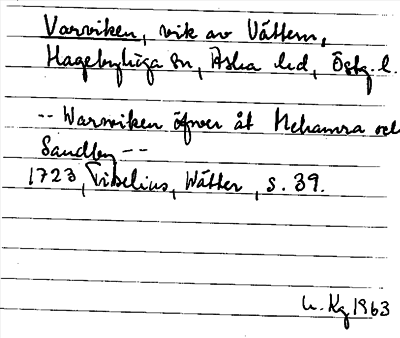 Varviken, vik av Vättern,
Hagebyhöga sn, Aska hd, Östg. l.
-- Warwiken öfwer åt och
Sandby --
1723, Tiselius, Wätter, s. 39.
Kg 1963